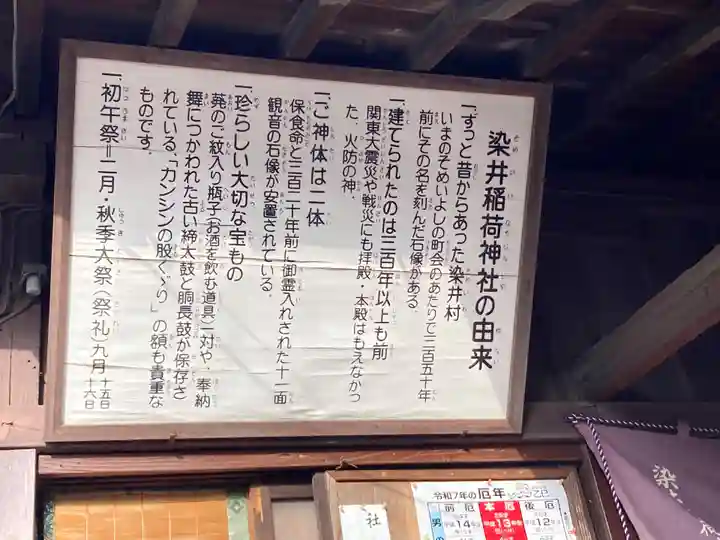 染井稲荷神社の由来
一、ずっと昔からあった染井村
いまのそめいよしの町会のあたりで三百五十年
前にその名を刻んだ石像がある。
一、建てられたのは三百年以上も前
関東大震災や戦災にも拝殿・本殿はもえなかっ
た、火防の神。
一、ご神体は二体
保食命と二百二十年前に御霊入れされた十一面
観音の石像が安置されている。
一、珍らしい大切な宝もの
葵のご紋入り瓶子(お酒を飲む道具)一対や、奉納
舞につかわれた古い締太鼓と胴長鼓が保存さ
れている。「カンシンの股くゞり」の額も貴重な
ものです。
一、初午祭＝二月・秋季大祭(祭礼)九月十五日十六日
令和7年の厄年
前厄 本厄 後厄
男
平成14年 平成13年 平成12年
社
染